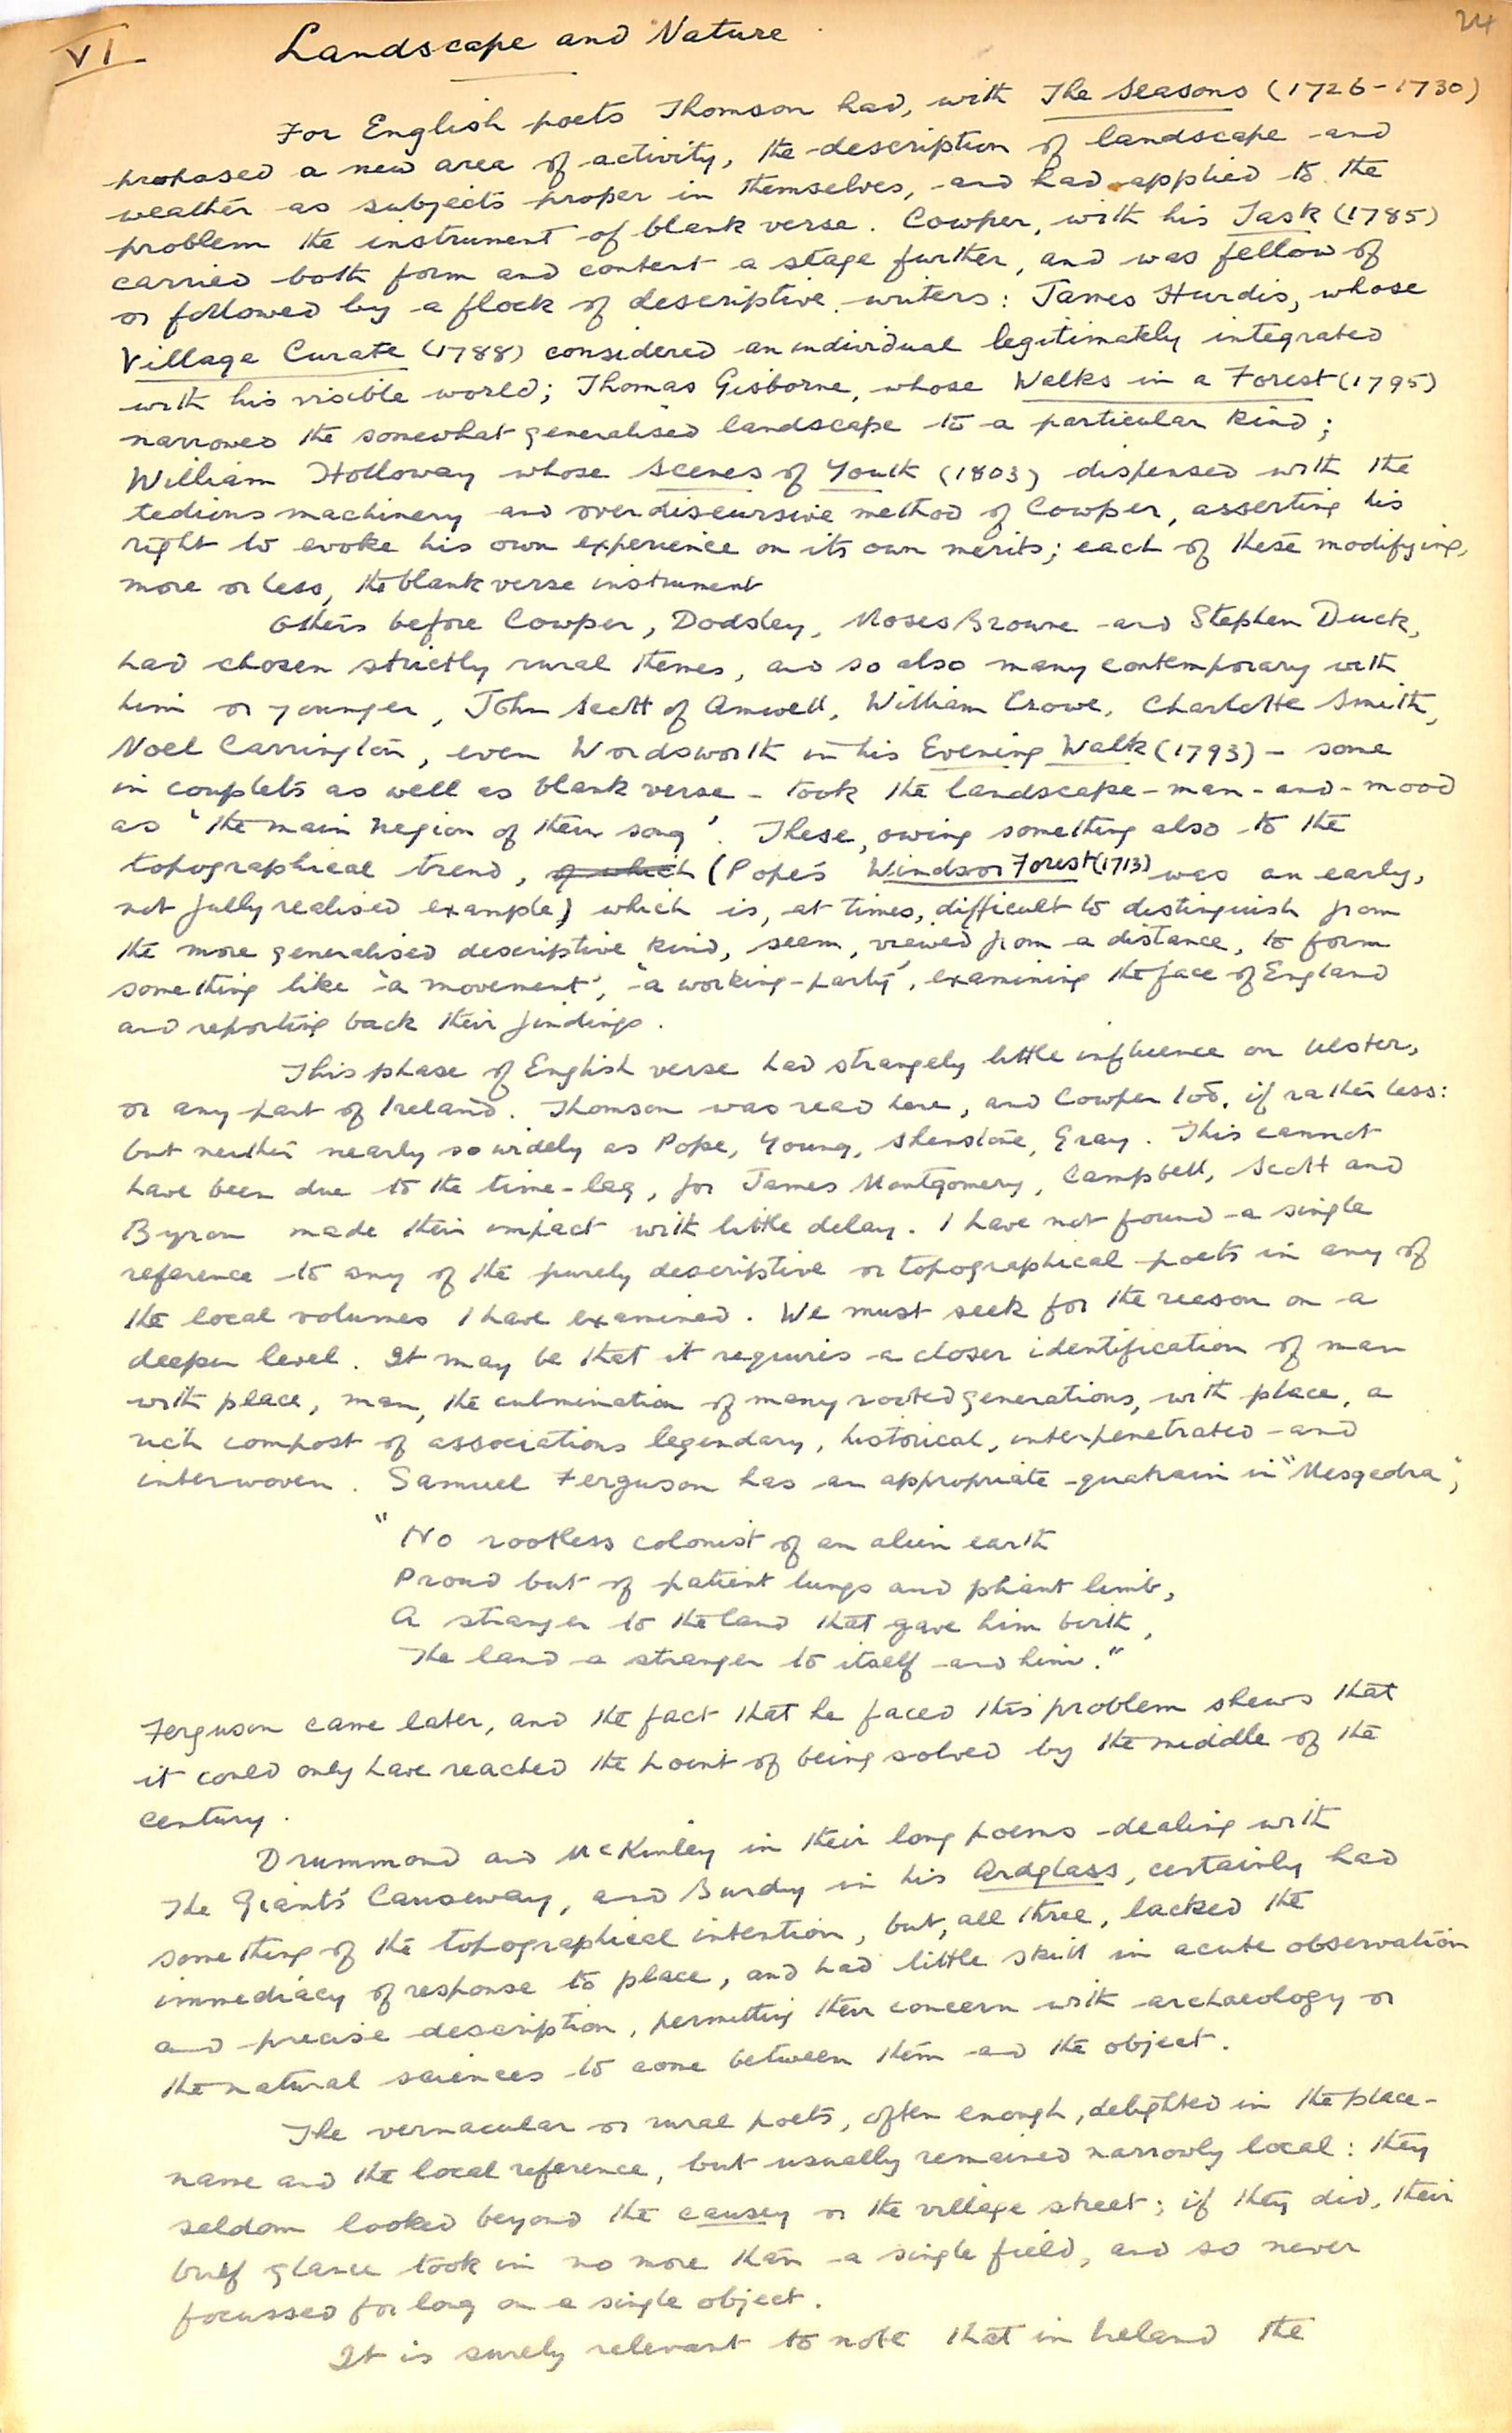 24
VI Landscape and Nature
For English poets Thomson had, with The Seasons (1726-1730)
proposed a new area of activity, the description of landscape and
weather as subjects proper in themselves, and had applied to the
problem the instrument of blank verse. Cowper, with his Task (1785)
carried both form and content a stage further, and was fellow of
or followed by a flock of descriptive writers: James Hurdis, whose
Village Curate (1788) considered an individual legitimately integrated
with his visible world; Thomas Gisborne, whose Walks in a Forest (1795)
narrowed the somewhat generalised landscape to a particular kind;
William Holloway whose Scenes of Youth (1803) dispensed with the
tedious machinery and overdiscursive method of Cowper, asserting his
right to evoke his own experience on its own merits; each of these modifying,
more or less, the blank verse instrument
Others before Cowper, Dodsley, Moses Browne and Stephen Duck,
had chosen strictly rural themes, and so also many contemporary with
him or younger, John Scott of Amwell, William Crowe, Charlotte Smith,
Noel Carrington, even Wordsworth in his Evening Walk (1793) - some
in couplets as well as blank verse - took the landscape-man-and-mood
as 'the main region of their song'. These, owing something also to the
topographical trend, of which (Pope's Windsor Forest (1713) was an early,
not fully realised example) which is, at times, difficult to distinguish from
the more generalised descriptive kind, seem, viewed from a distance, to form
something like 'a movement', 'a working-party', examining the face of England
and reporting back their findings.
This phase of English verse had strangely little influence on Ulster,
or any part of Ireland. Thomson was read here, and Cowper too, if rather less:
but neither nearly so widely as Pope, Young, Shenstone, Gray. This cannot
have been due to the time-lag, for James Montgomery, Campbell, Scott and
Byron made their impact with little delay. I have not found a single
reference to any of the purely descriptive or topographical poets in any of
the local volumes I have examined. We must seek for the reason on a
deeper level. It may be that it requires a closer identification of man
with place, man, the culmination of many rooted generations, with place, a
rich compost of associations legendary, historical, interpenetrated and
interwoven. Samuel Ferguson has an appropriate quatrain in "Mesgedra",
"No rootless colonist of an alien earth
Proud but of patient lungs and pliant limb,
A stranger to the land that gave him birth,
The land a stranger to itself and him."
Ferguson came later, and the fact that he faced this problem shews that
it could only have reached the point of being solved by the middle of the
century.
Drummond and McKinley in their long poems dealing with
The Giant's Causeway, and Burdy in his Ardglass, certainly had
something of the topographical intention, but, all three, lacked the
immediacy of response to place, and had little skill in acute observation
and precise description, permitting their concern with archaeology or
the natural sciences to come between them and the object.
The vernacular or rural poets, often enough, delighted in the place-
name and the local reference, but usually remained narrowly local: they
seldom looked beyond the causey or the village street; if they did, their
brief glance took in no more than a single field, and so never
focussed for long on a single object.
It is surely relevant to note that in Ireland the